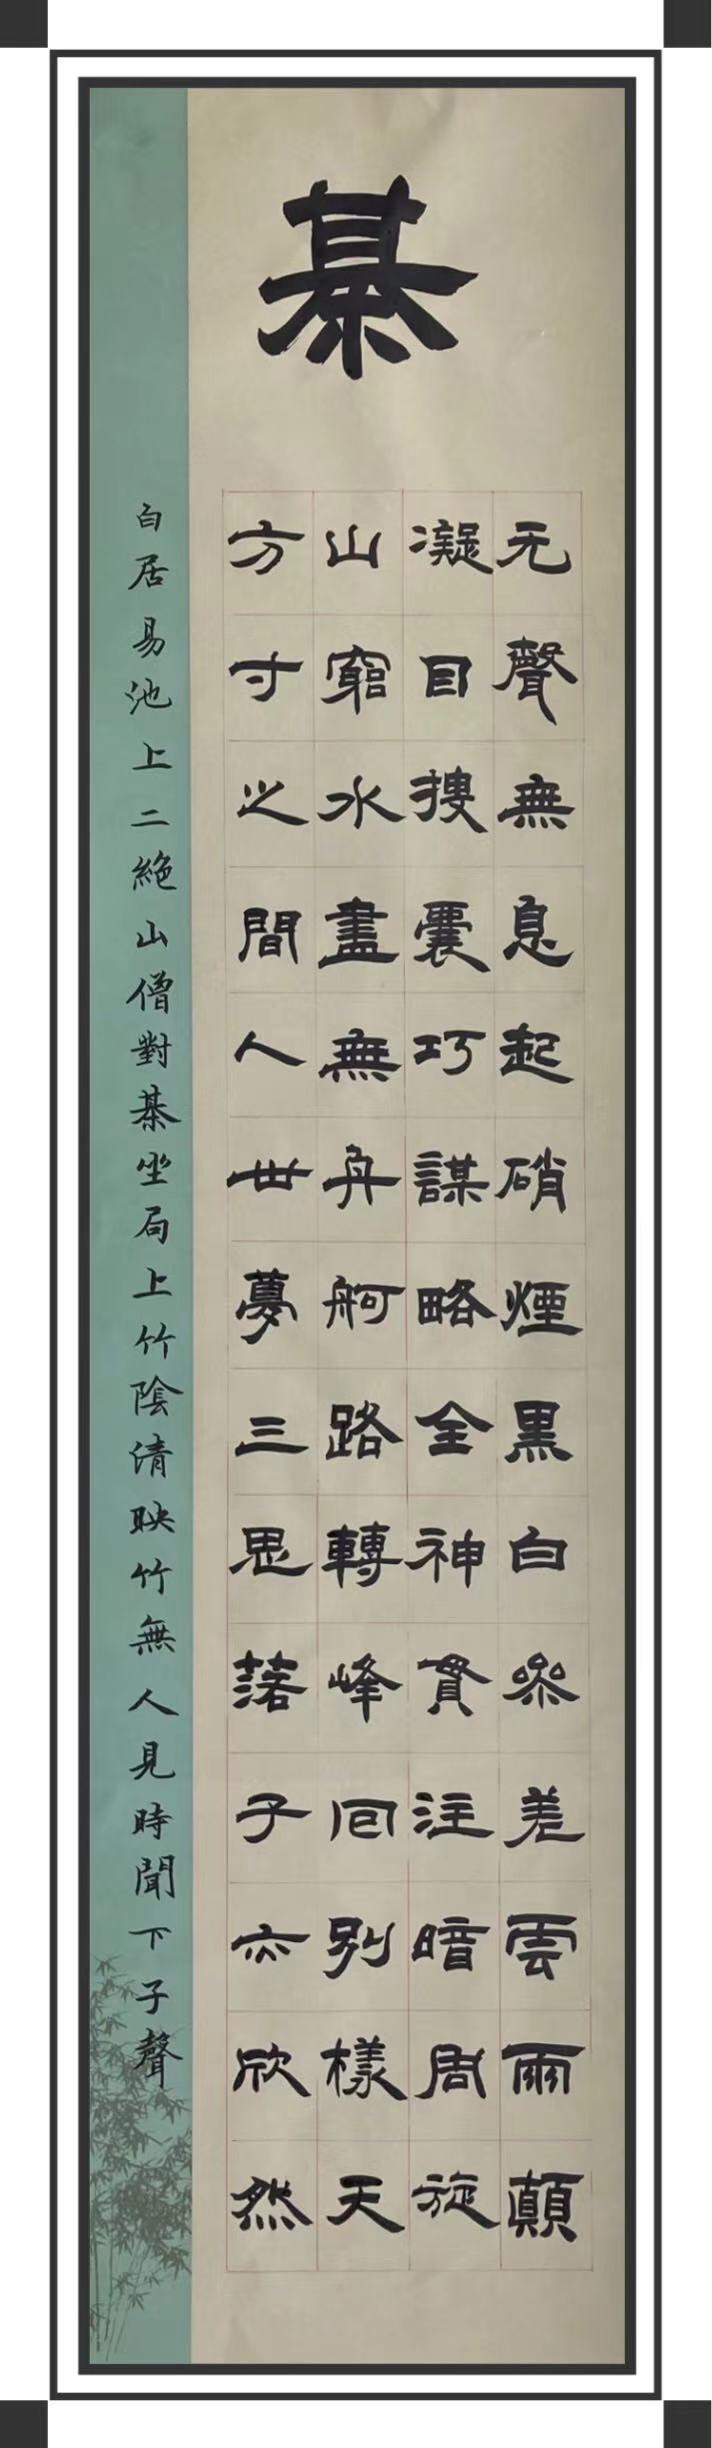 棊
无聲無息起硝煙黑白參差雲雨顛
凝目搜囊巧謀略全神貫注暗周旋
山窮水盡無舟舸路轉峰回別樣天
方寸之間人世夢三思落子亦欣然
白居易池上二絶山僧對棊坐局上竹陰清映竹無人見時聞下子聲